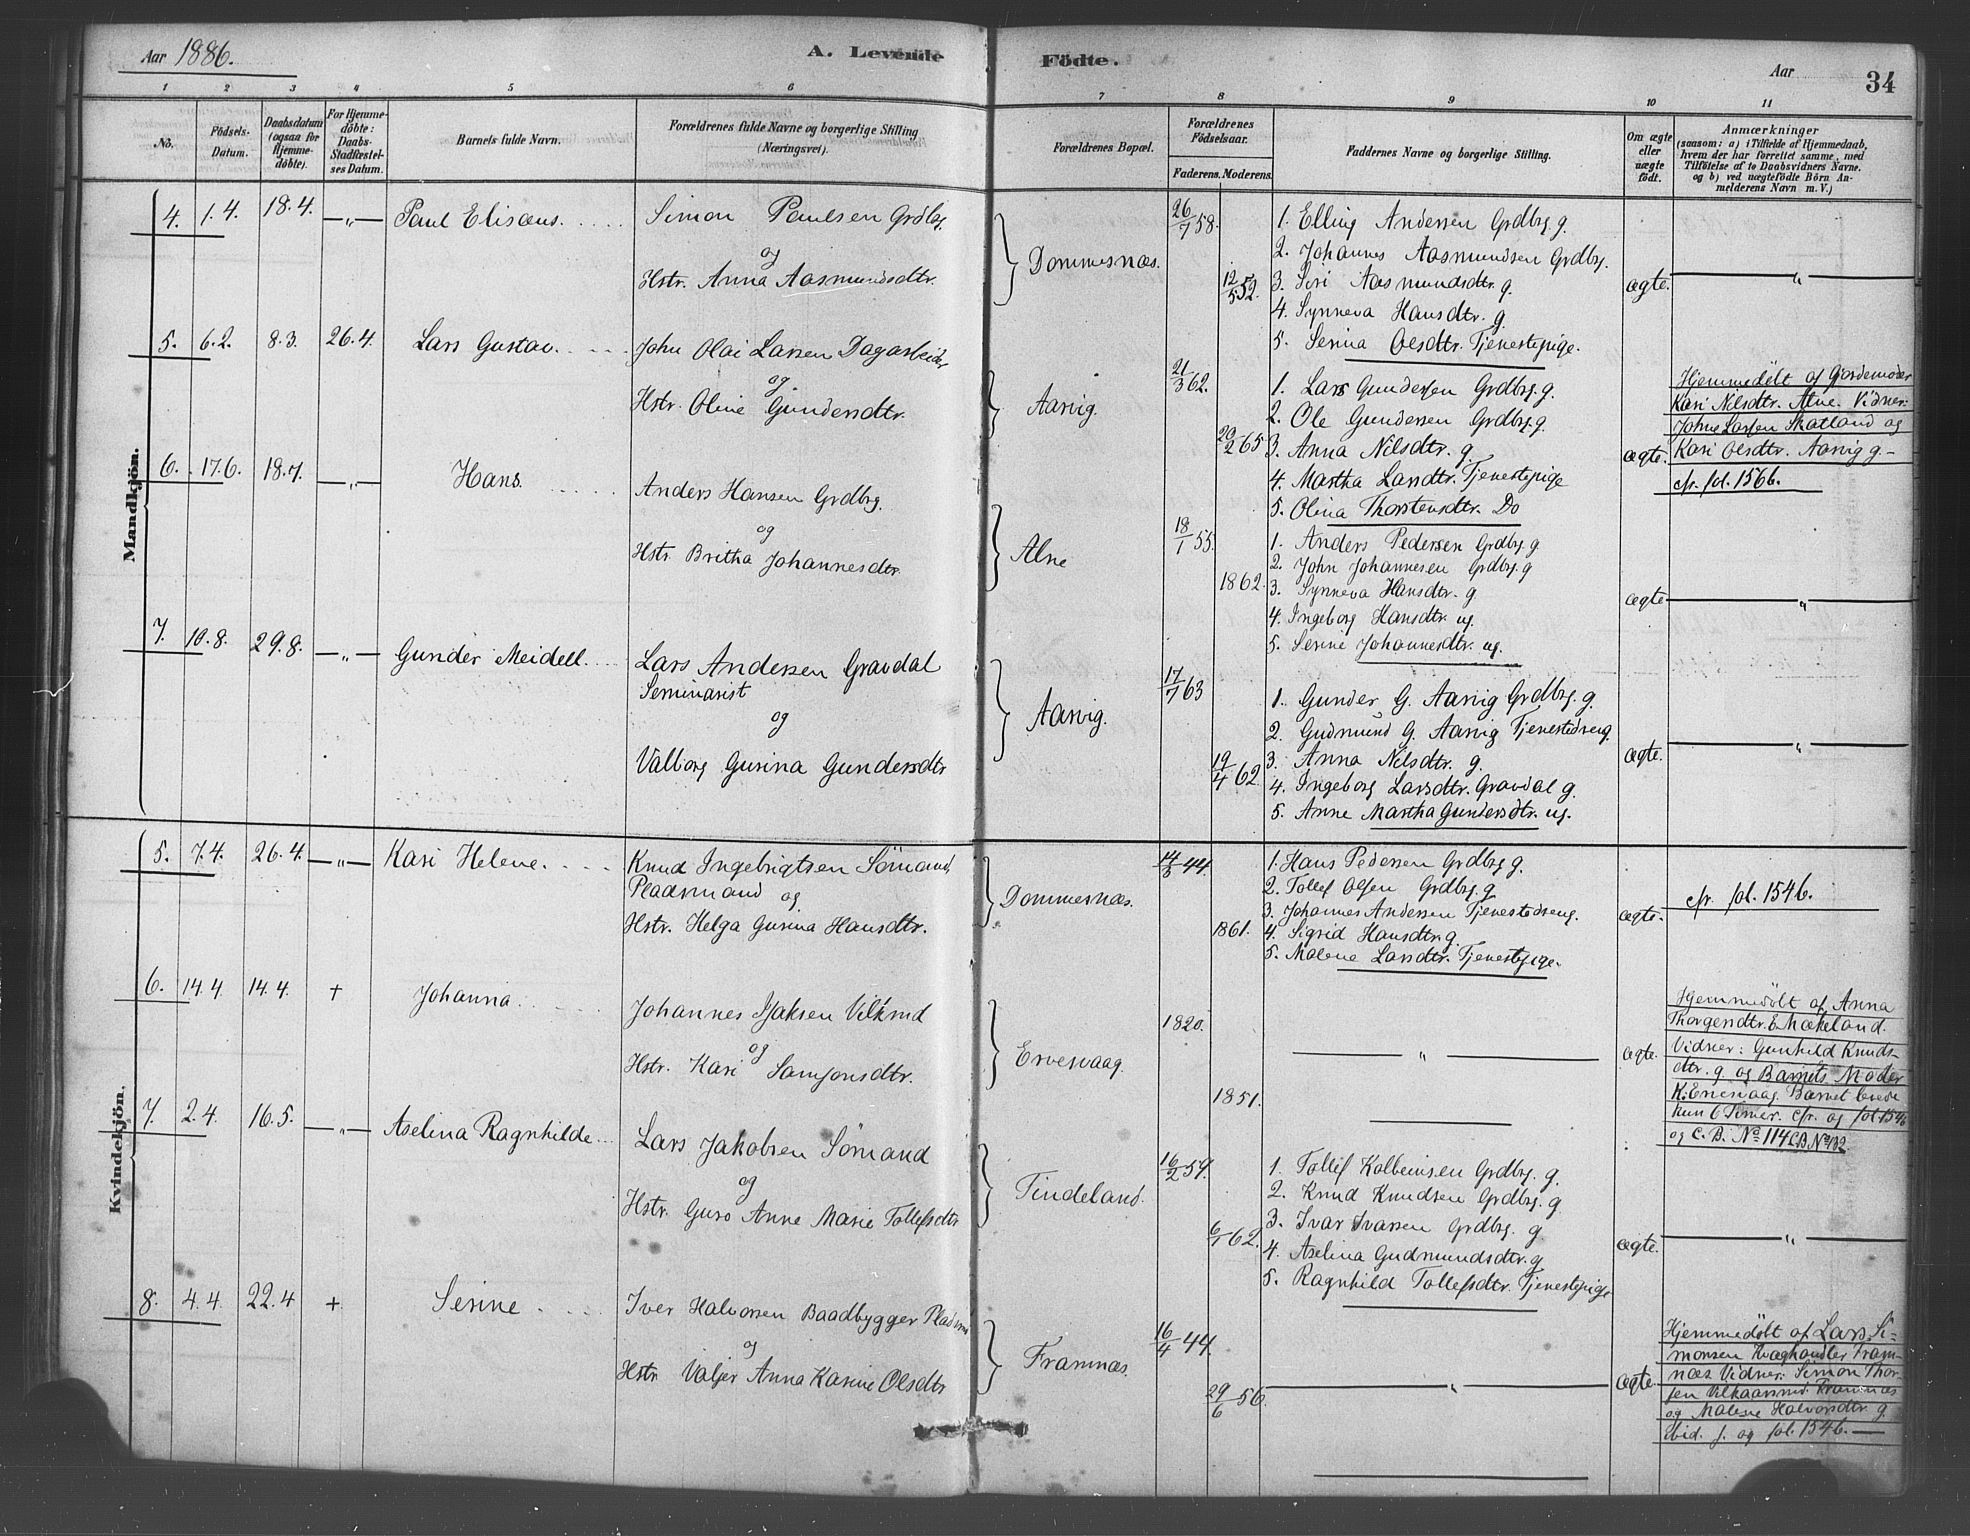 Aar 1886.
A. Levende Födte.
Aar
34
1 2 3 4 5 6 7 8 9 10 11
No.
Födsels-Datum.
Daabsdatum (ogsaa for Hjemme-döbte).
For Hjemme-döbte: Daabs-Stadfæstel-ses Datum.
Barnets fulde Navn.
Forældrenes fulde Navne og borgerlige Stilling (Næringsvei).
Forældrenes Bopæl.
Forældrenes Födselsaar.
Faderens. Moderens.
Faddernes Navne og borgerlige Stilling.
Om ægte eller uægte födt.
Anmærkninger
(saasom: a) i Tilfælde af Hjemmedaab, hvem der har forrettet samme, med Tilföielse af to Daabsvidners Navne. og b) ved uægtefödte Börn An-melderens Navn m. V.)
Mandkjön.
4. 1.4. 18.4. —„— Paul Elisæus.
Simon Paulsen Grdbg.
og
Hstr. Anna Aasmundsdtr.
Dommesnæs.
26/7 58.
12/5 52.
1. Elling Andersen Grdbrg. g.
2. Johannes Aasmundsen Grdbrg.
3. Siri Aasmundsdtr. g.
4. Synneva Hansdtr. g.
5. Serina Olsdtr. Tjenestepige.
ægte.
—„—
5. 6.2. 8.3. 26.4. Lars Gustav.
John Olai Larsen Dagarbeider
og
Hstr. Oline Gundersdtr.
Aarvig.
21/3 62.
20/2 65
1. Lars Gundersen Grdbrg. g.
2. Ole Gundersen Grdbrg. g.
3. Anna Nilsdtr. g.
4. Martha Larsdtr. Tjenestepige
5. Olina Thorstensdtr. Do
ægte.
Hjemmedøbt af Gjordemoder
Kari Nilsdtr. Alne. Vidner:
Johne Larsen Skatland og
Kari Olsdtr. Aarvig g. —
cfr. fol. 1566.
6. 17.6. 18.7. —„— Hans.
Anders Hansen Grdbrg.
og
Hstr. Britha Johannesdtr.
Alne
18/1 55.
1862.
1. Anders Pedersen Grdbrg. g.
2. John Johannesen Grdbrg. g
3. Synneva Hansdtr. g.
4. Ingeborg Hansdtr. ug.
5. Serine Johannesdtr. ug.
ægte
—„—
7. 10.8. 29.8. —„— Gunder Meidell.
Lars Andersen Gravdal
Seminarist
og
Valborg Gurina Gundersdtr
Aarvig.
17/7 63
19/4 62.
1. Gunder G. Aarvig Grdbrg. g.
2. Gudmund G. Aarvig Tjenestedreng.
3. Anna Nilsdtr. g.
4. Ingeborg Larsdtr. Gravdal g.
5. Anne Martha Gundersdtr. ug.
ægte.
—„—
Kvindekjön.
5. 7.4. 26.4. —„— Kari Helene.
Knud Ingebrigtsen Sömand,
Pladsmand og
Hstr. Helga Gurina Hansdtr.
Dommesnæs.
14/3 44.
1861.
1. Hans Pedersen Grdbrg g.
2. Tollef Olsen Grdbrg. g
3. Johannes Andersen Tjenestedreng.
4. Sigrid Hansdtr. g.
5. Malene Larsdtr. Tjenestepige.
ægte.
cfr. fol. 1546.
6. 14.4. 14.4. + Johanna.
Johannes Isaksen Vilkmd
og
Hstr. Kari Samsonsdtr.
Ervesvaag.
1820.
1851.
—„—
ægte.
Hjemmedøbt af Anna
Thorgersdtr. E. Mækeland.
Vidner: Gunhild Knuds-
dtr. g. og Barnets Moder
K. Ervesvaag Barnet levede
kun 6 Timer. cfr. og fol 1546
og C. B. No 114 C.B. No 132.
7. 2.4. 16.5. —„— Aselina Ragnhilde.
Lars Jakobsen Sömand
og
Hstr. Guro Anne Marie Tollefsdtr
Tindeland.
16/2 59.
6/1 62.
1. Tollef Kolbeinsen Grdbrg. g.
2. Knud Knudsen Grdbrg. g
3. Ivar Ivarsen Grdbrg. g
4. Aselina Gudmundsdtr. g
5. Ragnhild Tollefsdtr. Tjenestepige
ægte.
—„—
8. 4.4. 22.4 + Serine.
Iver Halvorsen Baadbygger
og
Hstr Valjer Anna Karine Olsdtr
Framnæs.
16/4 44.
29/6 56.
—„—
ægte.
Hjemmedøbt af Lars Si-
monsen Kvæghandler Fram-
næs Vidner: Simon Thor-
sen Vilkaarsmd. Framnæs
og Malene Halvorsdtr. g.
ibid. f. og fol. 1546. —